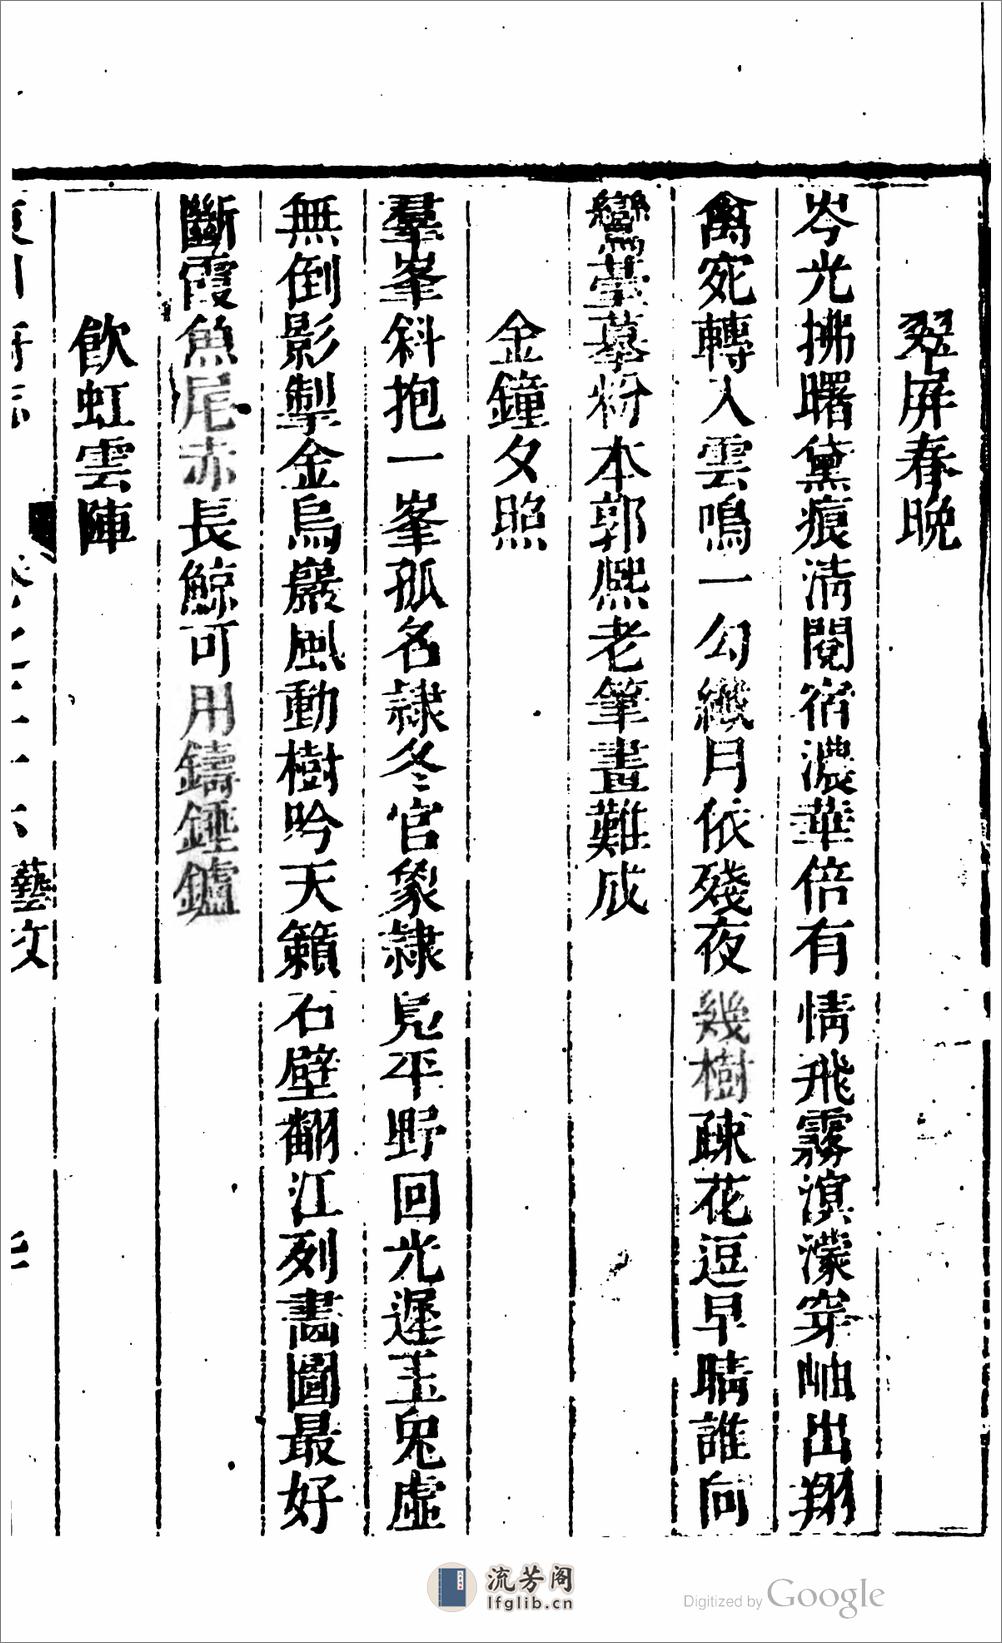 翠屏春晚
岑光拂曙黛痕淸閱宿濃華倍有情飛霧溟濛穿岫出翔
禽宛轉入雲鳴一勾纖月依殘夜幾樹疎花逗早晴誰向
鸞臺摹粉本郭熙老筆畫難成
金鐘夕照
羣峯斜抱一峯孤名隷冬官象隷鳧平野回光遲玉兔虛
無倒影掣金烏巖風動樹吟天籟石壁翻江列畵圖最好
斷霞魚尾赤長鯨可用鑄錘鑪
飲虹雲陣
藝文
流芳阁
lfglib.cn
Digitized by Google